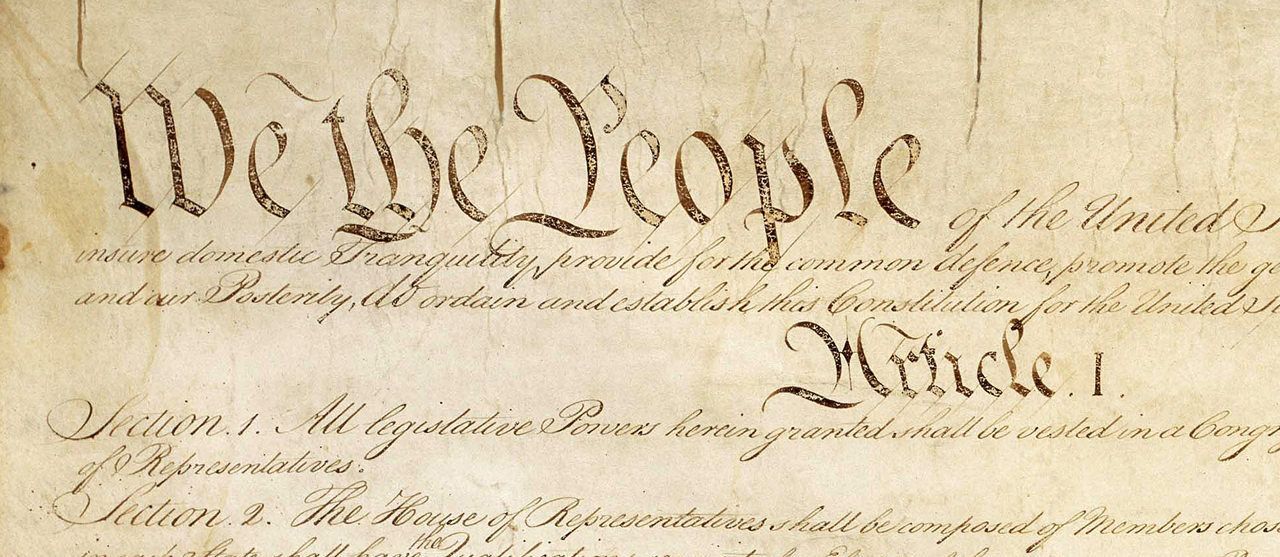 We the People of the United S
insure domestic Tranquility, provide for the common defence, promote the ge
and our Posterity, do ordain and establish this Constitution for the United St
Article. I.
Section. 1. All legislative Powers herein granted shall be vested in a Congr
of Representatives.
Section. 2. The House of Representatives shall be composed of Members chos
in each State shall have the Qualifications